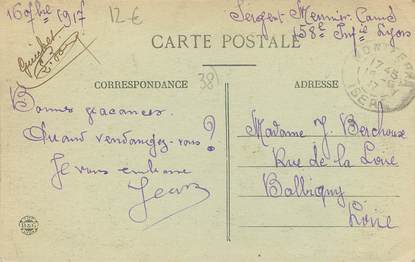 16 7bre 1917
12-€
Sergent Meunier Camd
158e Infie Lyon
CARTE POSTALE
CORRESPONDANCE
38
ADRESSE
17 45
ISERE
Bonnes vacances.
Quand vendangez-vous?
Je vous embrasse
Jean
Madame J. Berchoux
Rue de la Loire
Balbigny
Loire
B&G